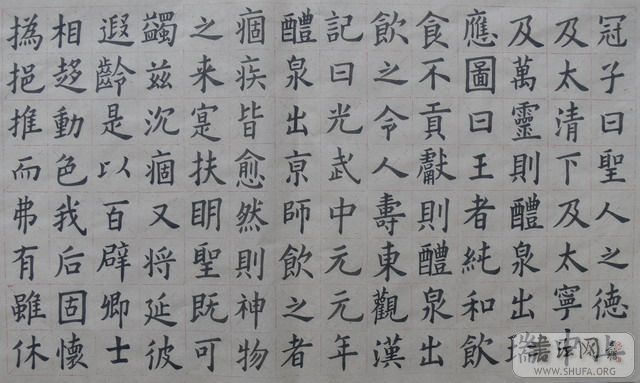 冠子曰聖人之德上
及太清下及太寧中
及萬靈則醴泉出瑞
應圖曰王者純和飲
食不貢獻則醴泉出
飲之令人壽東觀漢
記曰光武中元元年
醴泉出亰師飲之者
痼疾皆愈然則神物
之来寔扶眀聖既可
蠲兹沉痼又将延彼
遐齡是以百辟卿士
相趍動色我后固懷
撝挹推而弗有雖休
書法网
WWW.SHUFA.ORG